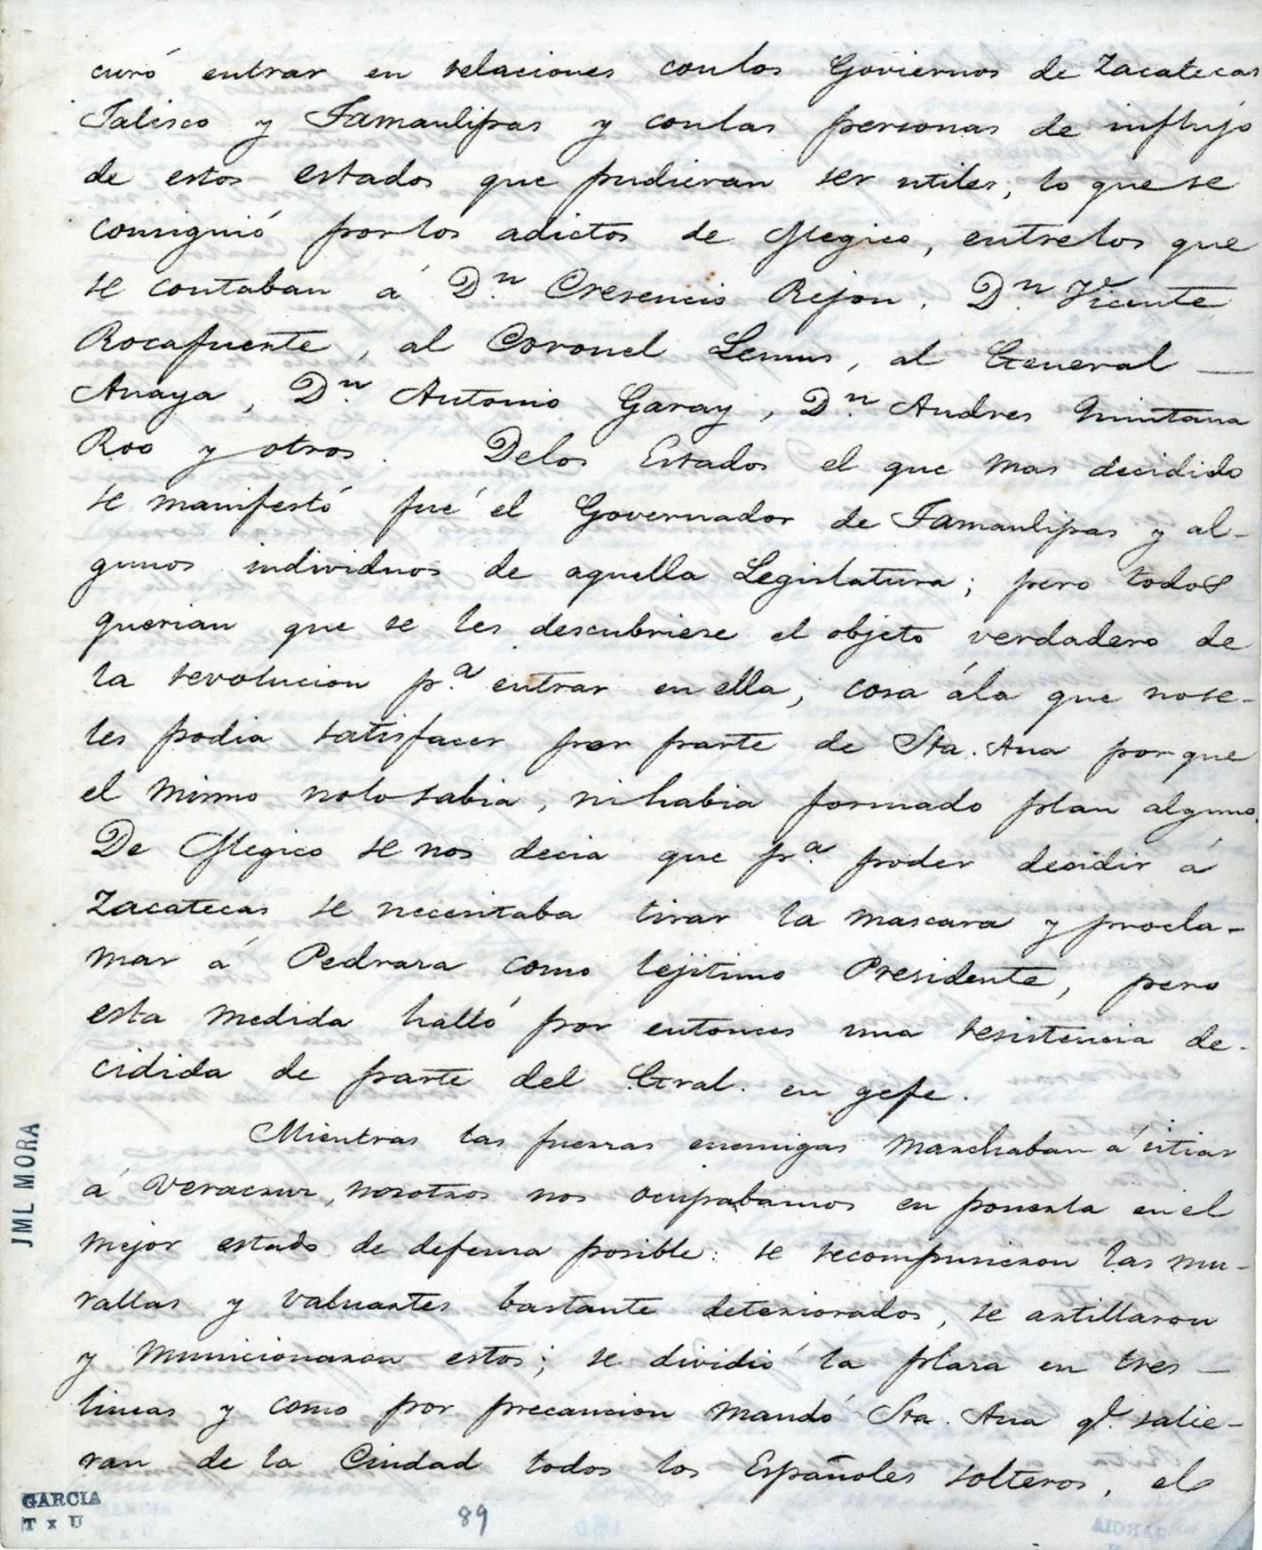 curó entrar en relaciones conlos Goviernos de Zacatecas
Jalisco y Tamaulipas y conlas personas de inflújo
de estos estados que pudieran ser utiles, lo que se
consiguió porlos adictos de Megico, entrelos que
se contaban á Dn. Cresencio Rejon, Dn. Vicente
Rocafuente, al Coronel Lemus, al General —
Anaya, Dn. Antonio Garay, Dn. Andres Quintana
Roo y otros. Delos Estados el que mas decidido
se manifestó fué el Governador de Tamaulipas y al-
gunos individuos de aquella Legislatura; pero todos
querian que se les descubriese el objeto verdadero de
la revolucion pa. entrar en ella, cosa ála que nose-
les podia satisfacer por parte de Sta. Ana porque
el mismo nolosabia, nihabia formado plan alguno.
De Megico se nos decia que pa. poder decidir á
Zacatecas se necesitaba tirar la mascara y procla-
mar á Pedraza como lejitimo Presidente, pero
esta medida halló por entonces una resistencia de-
cidida de parte del Gral. en gefe.
Mientras las fuerzas enemigas marchaban á sitiar
á Veracruz, nosotros nos ocupabamos en ponerla en el
mejor estado de defensa posible: se recompusieron las mu-
rallas y valuartes bastante deteriorados, se artillaron
y municionaron estos; se dividió la plaza en tres —
lineas y como por precaucion mandó Sta. Ana qe. salie-
ran de la Ciudad todos los Españoles solteros, el
JML MORA
GARCIA
T x U
89